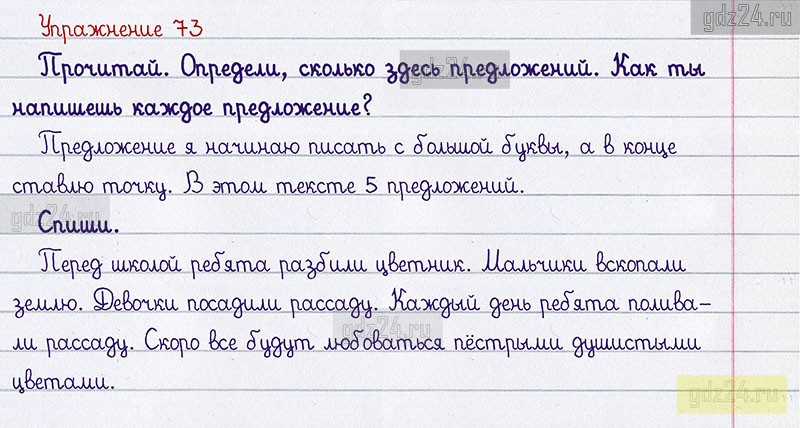 gdz24.ru
Упражнение 73
Прочитай. Определи, сколько здесь предложений. Как ты
напишешь каждое предложение?
Предложение я начинаю писать с большой буквы, а в конце
ставлю точку. В этом тексте 5 предложений.
gdz24.ru
Спиши.
Перед школой ребята разбили цветник. Мальчики вскопали
землю. Девочки посадили рассаду. Каждый день ребята полива-
gdz24.ru
ли рассаду. Скоро все будут любоваться пёстрыми душистыми
цветами.
gdz24.ru